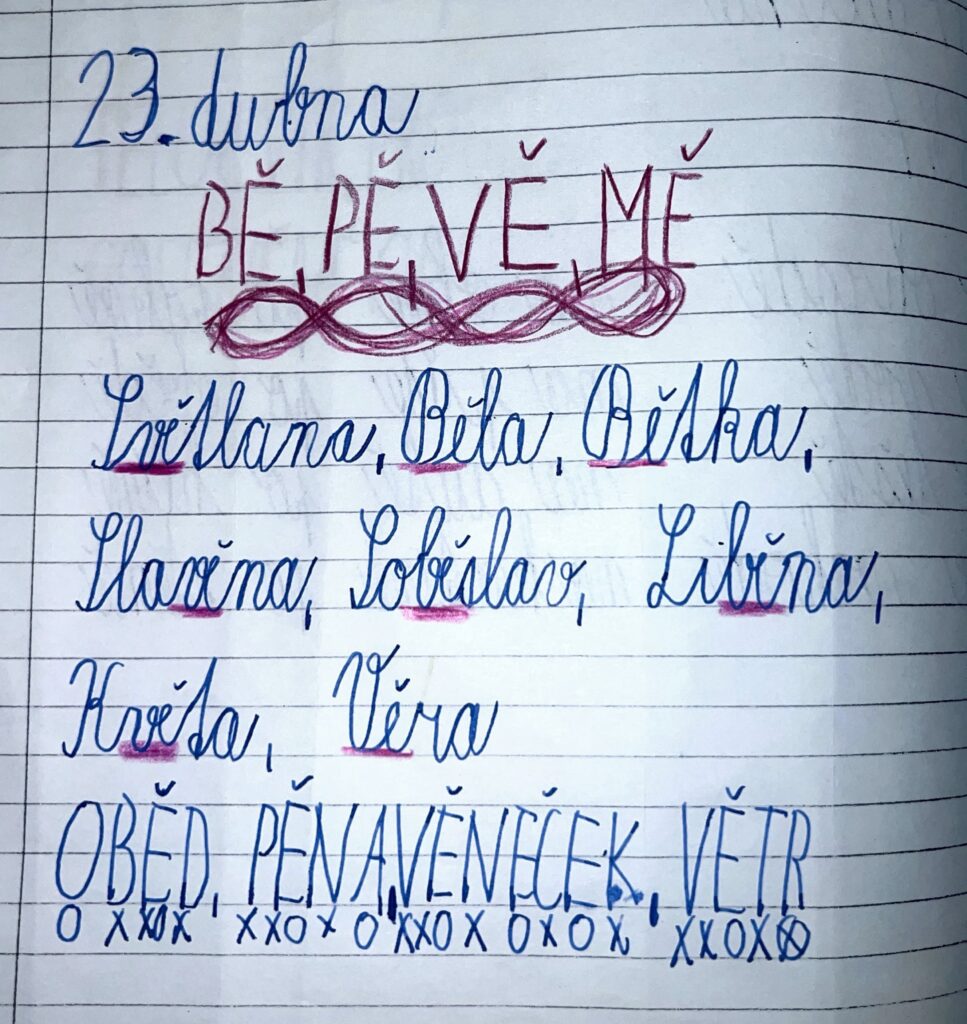 23. dubna
BĚ, PĚ, VĚ, MĚ
Světlana, Běla, Bětka,
Slavěna, Soběslav, Liběna,
Květa, Věra
OBĚD, PĚNA, VĚNEČEK, VĚTR
O XXOX XXOX O XXOX OXOX XXOXⓍ